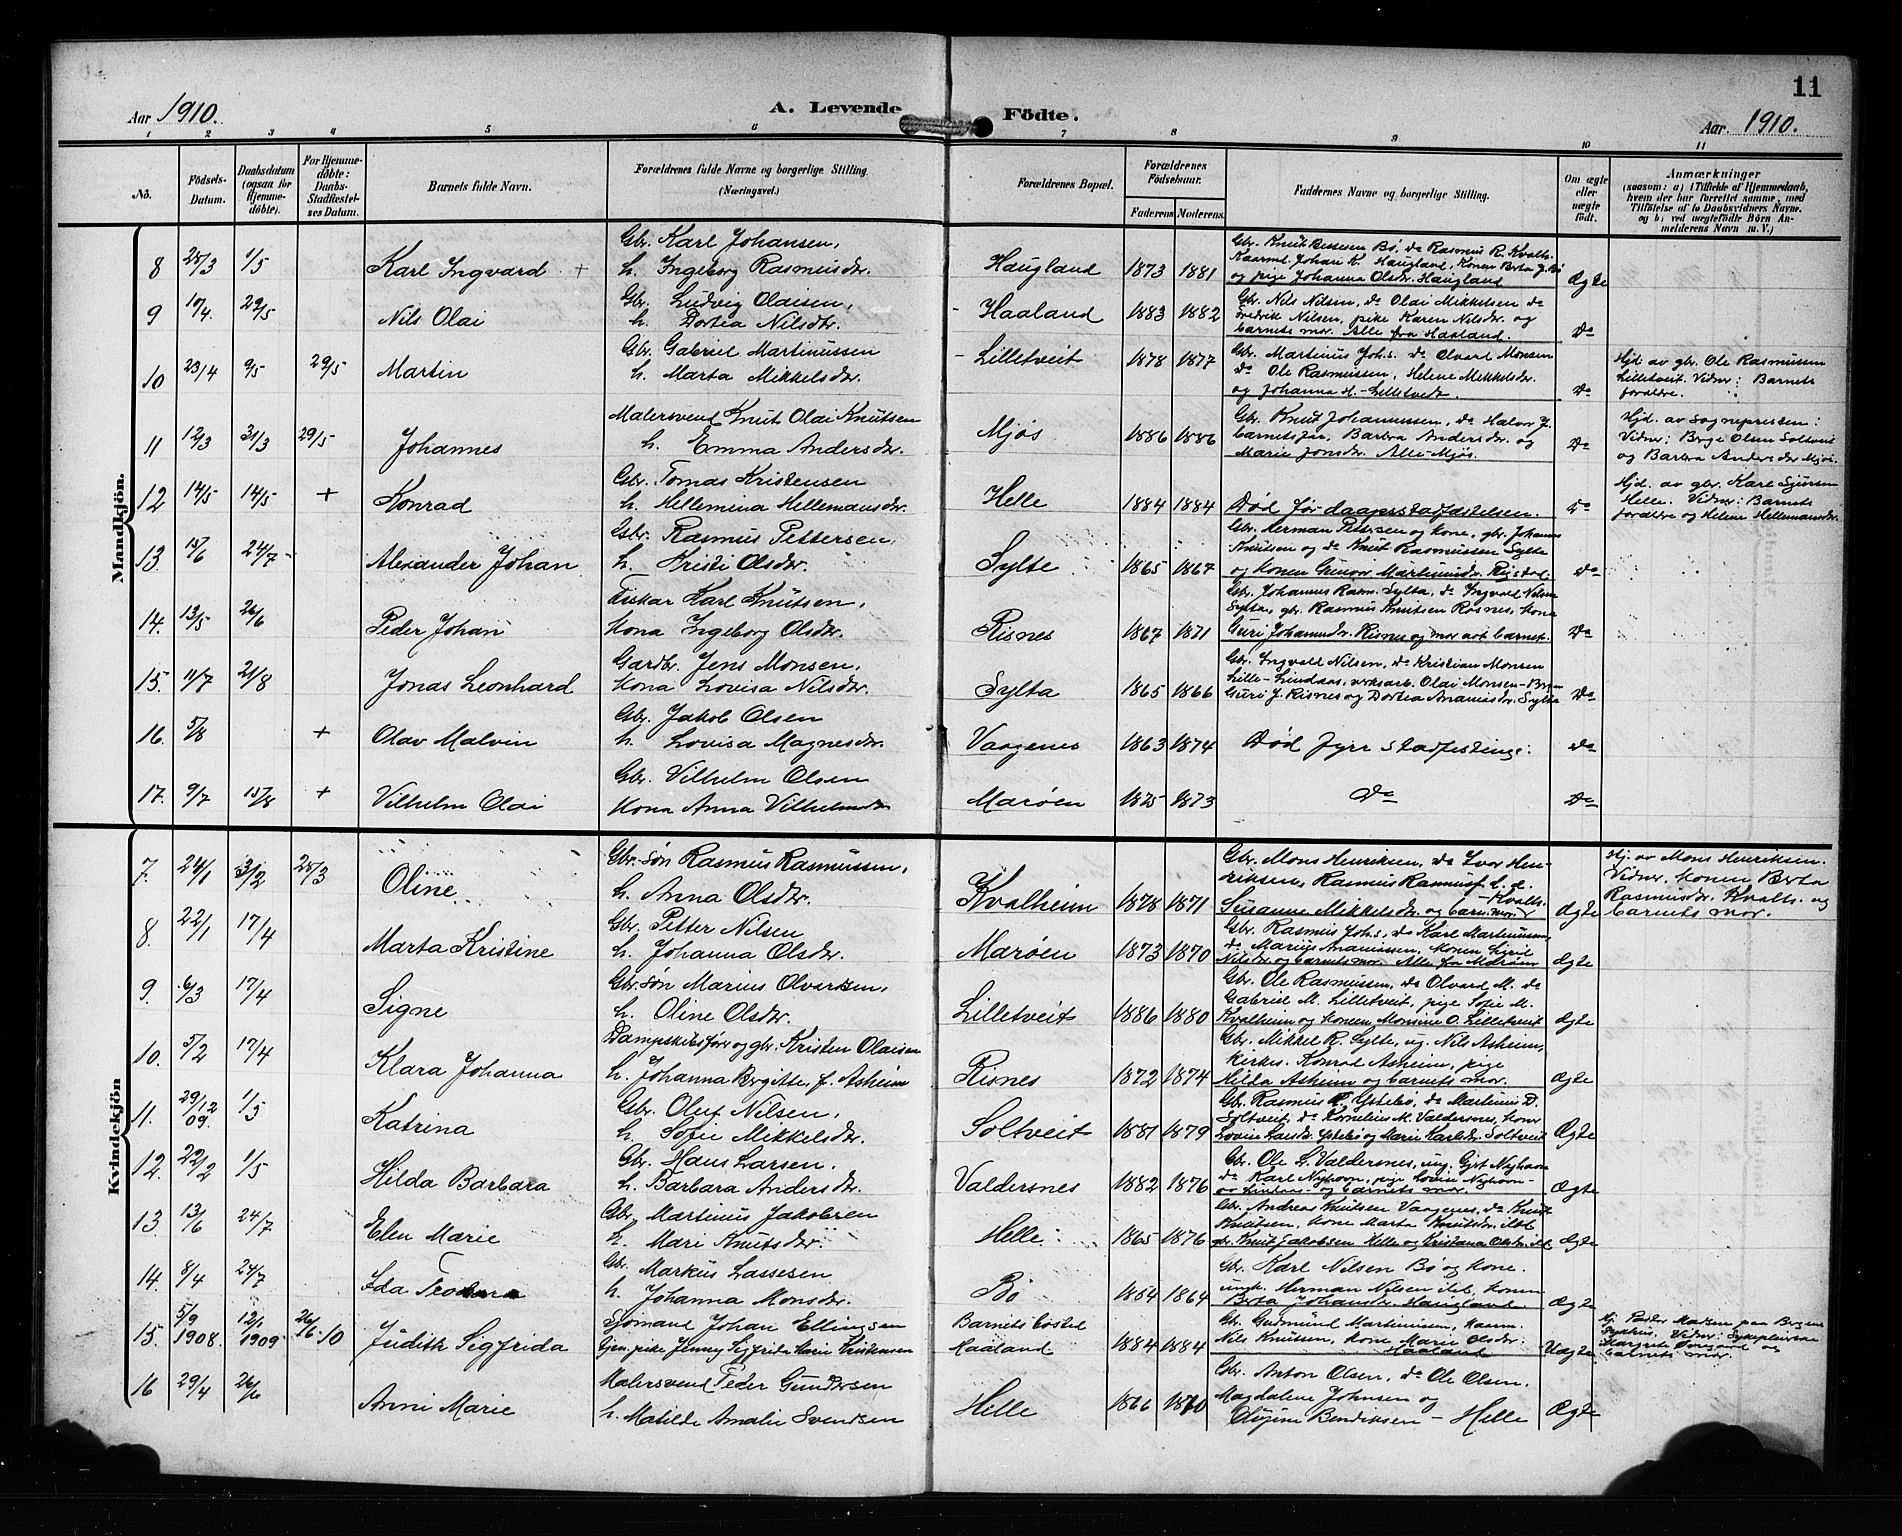 11
Aar 1910.
A. Levende Födte.
Aar 1910.
1 2 3 4 5 6 7 8 9 10 11
No.
Födsels-Datum.
Daabsdatum (ogsaa for Hjemmedöbte).
For Hjemmedöbte: Daabs-Stadfæstelses Datum.
Barnets fulde Navn.
Forældrenes fulde Navne og borgerlige Stilling. (Næringsvei.)
Forældrenes Bopæl.
Forældrenes Födselsaar.
Faderens. Moderens.
Faddernes Navne og borgerlige Stilling.
Om ægte eller uægte födt.
Anmærkninger
(saasom: a) i Tilfælde af Hjemmedaab, hvem der har forrettet samme, med Tilföielse af to Daabsvidners Navne, og b) ved uægtefödte Börn Anmelderens Navn m. V.)
Mandkjön.
8 25/3 1/5 Karl Ingvard + Gbr. Karl Johansen, h. Ingeborg Rasmusdr. Haugland 1873 1881 Gbr. Knut Bessesen Bø, do Rasmus R. Kvalh. Kaarmd. Johan K. Haugland, Konen Berta J. Bø og pige Johanna Olsdr. Haugland Ægte
9 17/4. 29/5 Nils Olai Gbr. Ludvig Olaisen, h. Dortea Nilsdtr. Haaland 1883 1882 Gbr. Nils Nilsen, do Olai Mikkelsen do Fredrik Nilsen, pike Karen Nilsdr. og barnets mor. Alle fra Haaland. Do
10 23/4 9/5 29/5 Martin Gbr. Gabriel Martinussen h. Marta Mikkelsdr. Lilletveit 1878 1877 Gbr. Martinus Johs. do Olvard Monsen do Ole Rasmussen, Helene Mikkelsdr. og Johanna H. Lilletvedt. Do Hjd. av gbr. Ole Rasmussen Lilletveit. Vidner: Barnets foraldre.
11 12/3 31/3 29/5 Johannes Malersvend Knut Olai Knutsen h. Emma Andersdr. Mjøs 1886 1886 Gbr. Knut Johannessen, do Halvor J. barnets far, Barbra Andersdr. og Marie Jonsdr. Alle Mjøs. Do Hjd. av Sognepresten: Vidner: Brge Olsen Soltveit og Barbra Andersdr Mjøs.
12 14/5 14/5 + Konrad Gbr. Tomas Kristensen h. Hellemina Hellemansdr. Helle 1884 1884 Død før daapsstadfæstelsen. Do Hjd. av gbr. Karl Sjursen Helle. Vidner: Barnets foraldre og Helene Hellemansdr.
13. 15/6 24/7 Alexander Johan Gbr. Rasmus Pettersen, h. Kristi Olsdr. Sylte 1865 1867 Gbr. Herman Petersen og kone, gbr. Johannes Knutsen og do Knut Rasmussen Sylte og Konen Gunor Martinusdr. Rigsdal. Do
14. 13/5 26/6 Peder Johan Fiskar Karl Knutsen, Kona Ingeborg Olsdr. Risnes 1867 1871 Gbr. Johannes Rasm. Sylta, do Ingvald Nilsen Sylta, gbr. Rasmus Knutsen Rosnes, kona Guri Johannesdr. Risnes og mor aat barnet. Do
15. 11/7 21/8 Jonas Leonhard Gardbr. Jens Monsen, Kona Lovisa Nilsdr. Sylta 1865 1866 Gbr. Ingvald Nilsen, do Kristian Monsen Lille-Lindaas, verksarb. Olai Monsen-Bergen Guri J. Risnes og Dortea Ananiasdr. Sylta Do
16. 5/8 + Olav Malvin Gbr. Jakob Olsen h. Lovisa Magnesdr. Vaagenes 1863 1874 Død fyrr stadfesting: do
17. 9/7 15/8 + Vilhelm Olai Gbr. Vilhelm Olsen Kona Anna Vilhelmsdr Marøen 1875 1873 Do Do
Kvindekjön
7. 24/1 3/2 25/3 Oline Gbr. søn Rasmus Rasmussen, h. Anna Olsdr. Kvalheim 1878 1871 Gbr. Mons Henriksen, do Ivar Henriksen, Rasmus Rasmusf. Kvalh. Susanne Mikkelsdr. og barn. mor Ægte Hj. av Mons Henriksen. Vidner, Konen Berta Rasmusdr. Kvalh. og barnets mor.
8. 22/1 17/4 Marta Kristine Gbr. Petter Nilsen h. Johanna Olsdr. Marøen 1873 1870 Gbr. Rasmus Johs, do Karl Martinusen, do Marius Ananiassen, Konen Sigrid Nilsdr og barnets mor. Alle fra Marøen Ægte
9. 6/3 17/4 Signe Gbr. søn Marius Olvardsen, h. Oline Olsdr. Lilletveit 1886 1880 Gbr. Ole Rasmussen, do Olvard M. do Gabriel M. Lilletveit, pige Sofie M. Kvalheim og Konen Monsine O. Lilletveit Ægte
10. 5/2 17/4 Klara Johanna Dampskibsfører og gbr. Kristen Olaisen h. Johanna Bergitte, f. Asheim Risnes 1872 1874 Gbr. Mikkel R. Sylte, ug. Nils Asheim, kirkes. Konrad Asheim, pige Hilda Asheim og barnets mor. Ægte
11. 29/12 09. 1/5 Katrina Gbr. Oluf Nilsen, h. Sofie Mikkelsdr. Soltveit 1881 1879 Gbr. Rasmus P. Ystebø, do Martinus D. Soltveit, do Kornelius M. Valdersne, kone Lovise Larsdr. Ystebø og Marie Karlsdr. Soltveit Ægte
12. 22/2 1/5 Hilda Barbara Gbr. Hans Larsen. h. Barbara Andersdr. Valdersnes 1882 1876 Gbr. Ole L. Valdersnes, ung. Gjert Nyhavn do Karl Nyhavn, pige Lovise Nyhavn og barnets mor. Ægte
13. 13/6 24/7 Elen Marie Gbr. Martinus Jakobsen h. Mari Knutsdr. Helle. 1865 1876 Gbr. Andreas Knutsen Vaagenes, do Knut Knutsen, kone Marta Knutsdr. ibd. gbr. Knut Jakobsen Helle og Kristiana Olsdr. ibd. Ægte
14. 8/4 24/7 Ida Gbr. Markus Lassesen h. Johanna Monsdr. Bø 1854 1864 Gbr. Karl Nilsen Bø og kone. ungk. Herman Nilsen ibd., konen Berta Johansdr. Haugland Ægte
15. 5/9 1908. 12/1 1909 26/6 10 Judith Sigfrida Sjømand Johan Ellingsen Gjen. pike Jenny Sigfrida Marie Kristensen Barnets bosted Haaland 1884 1884 Gbr. Gudmund Martinusen, kaarm. Nils Knutsen, kone Marie Olsdr: Haaland Uægte Hj. Pastor Madsen paa Bergens Sykehus. Vidner: Sykepleierske Margrete og barnets mor.
16 29/4 26/6 Anni Marie Malersvend Peder Gundersen h. Matilde Amalie Svendsen Helle 1866 1870 Gbr. Anton Olsen, do Ole Olsen, Magdalene Johnsen og Bendiksen - Helle Ægte